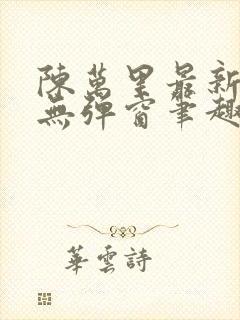 陳萬里最新
無彈窗筆趣
華雲詩